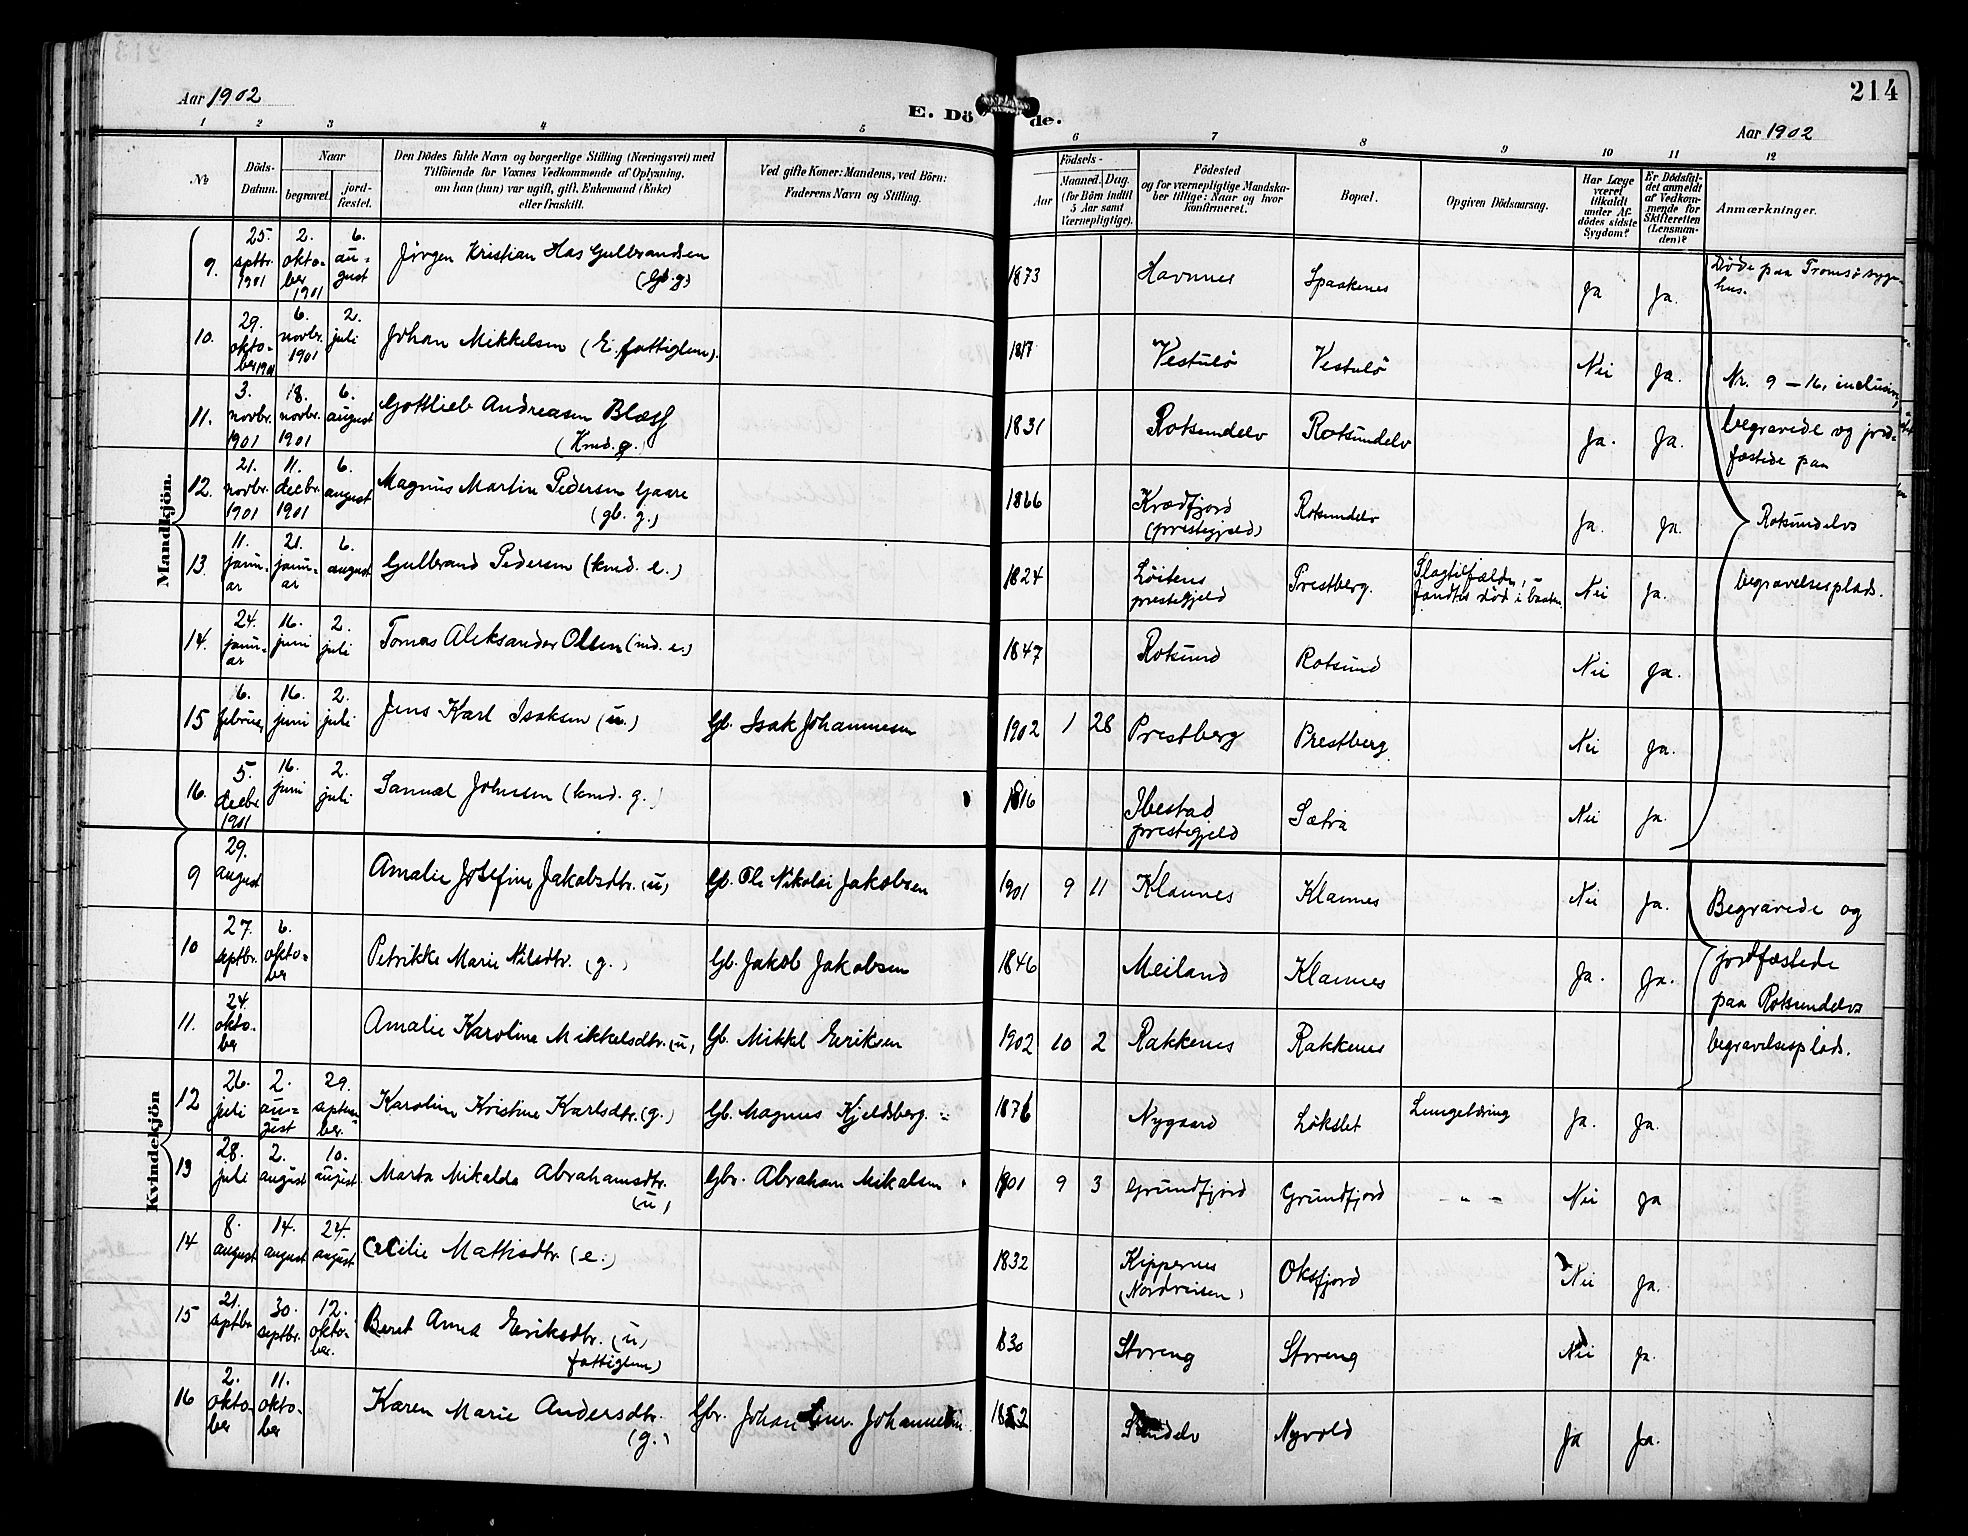 Aar 1902
E. Döde.
214
Aar 1902
1 2 3 4 5 6 7 8 9 10 11 12
No
Döds-Datum.
Naar
begravet.
jordfæstet.
Den Dödes fulde Navn og borgerlige Stilling (Næringsvei) med
Tilföiende for Voxnes Vedkommende af Oplysning,
om han (hun) var ugift, gift, Enkemand (Enke)
eller fraskilt.
Ved gifte Koner: Mandens, ved Börn:
Faderens Navn og Stilling.
Födsels-
Aar
Maaned. Dag.
(for Börn indtil
5 Aar samt
Værnepligtige).
Födested
og for værnepligtige Mandska-
ber tillige: Naar og hvor
konfirmeret.
Bopæl.
Opgiven Dödsaarsag.
Har Læge
været
tilkaldt
under Af-
dödes sidste
Sygdom?
Er Dödsfal-
det anmeldt
af Vedkom-
mende for
Skifteretten
(Lensman-
den)?
Anmærkninger.
Mandkjön.
9. 25. septbr. 1901 2. oktober 1901 6. august Jørgen Kristian Has Gulbrandsen (gb. g.) 1873 Havnnes Spaakenes Ja Ja. Døde paa Tromsø sygehus.
10. 29. oktober 1901 6. novbr. 1901 2. juli Johan Mikkelsen (E. fattiglem). 1817 Vestulø Vestulø Nei Ja.
11. 3. novbr. 1901 18. novbr. 1901 6. august Gottlieb Andreasen (Kmd. g.) 1831 Rotsundelv Rotsundelv Ja. Ja.
12. 21. novbr. 1901 11. decbr. 1901 6. august Magnus Martin Pedersen Gaare (gb. g.) 1866 Kvædfjord (prestegjeld) Rotsundelv Ja. Ja.
13. 11. januar 21. januar 6. august Gulbrand Pedersen (kmd. e.) 1824 Løitens prestegjeld Prestberg. Slagtilfælde, fandtes død i baaten. Nei Ja.
14. 24. januar 16. juni 2. juli Tomas Aleksander Olsen (ind. e.) 1847 Rotsund Rotsund Nei Ja.
15 6. februar 16. juni 2. juli Jens Karl Isaksen (u.) Gb. Isak Johannesen 1902 1 28 Prestberg Prestberg Nei Ja.
16. 5. decbr. 1901 16. juni 2. juli Samuel Johnsen (kmd. g.) 1816 Ibestad prestegjeld Sætra Nei Ja.
Nr. 9 – 16, inclusive,
begravede og jord-
fæstede paa
Rotsundelvs
begravelsesplads.
Kvindekjön
9 29. august Amalie Josefine Jakobsdtr. (u) Gb. Ole Nikolai Jakobsen 1901 9 11 Klaunes Klaunes Nei Ja.
10 27. septbr. 6. oktober Petrikke Marie Nilsdtr. (g.) Gb. Jakob Jakobsen 1846 Meiland Klaunes Ja. Ja.
11. 24. oktober Amalie Karoline Mikkelsdtr. (u) Gb. Mikkel Eriksen 1902 10 2 Rakkenes Rakkenes
Begravede og
jordfæstede
paa Rotsundelvs
begravelsesplads.
12 26. juli 2. august 29. september. Karoline Kristine Karlsdtr. (g.) Gb. Magnus Kjeldsberg. 1876 Nygaard Løkslet Lungetæring Ja. Ja.
13 28. juli 2. august 10. august. Marta Mikalda Abrahamsdtr. (u) Gbr. Abraham Mikalsen 1901 9 3 Grundfjord Grundfjord – „ – Nei Ja
14 8. august 14. august 24. august Cecilie Mathisdtr. (e.) 1832 Kippernes (Nordreisen) Oksfjord Nei Ja.
15 21. septbr 30. septbr. 12. oktober. Beret Anna Eriksdtr. (u) fattiglem) 1830 Storeng Storeng Nei Ja.
16 2. oktober 11. oktober Karen Marie Andersdtr. (g.) Gbr. Johan Johannesen. 1852 Nyvold Ja Ja.